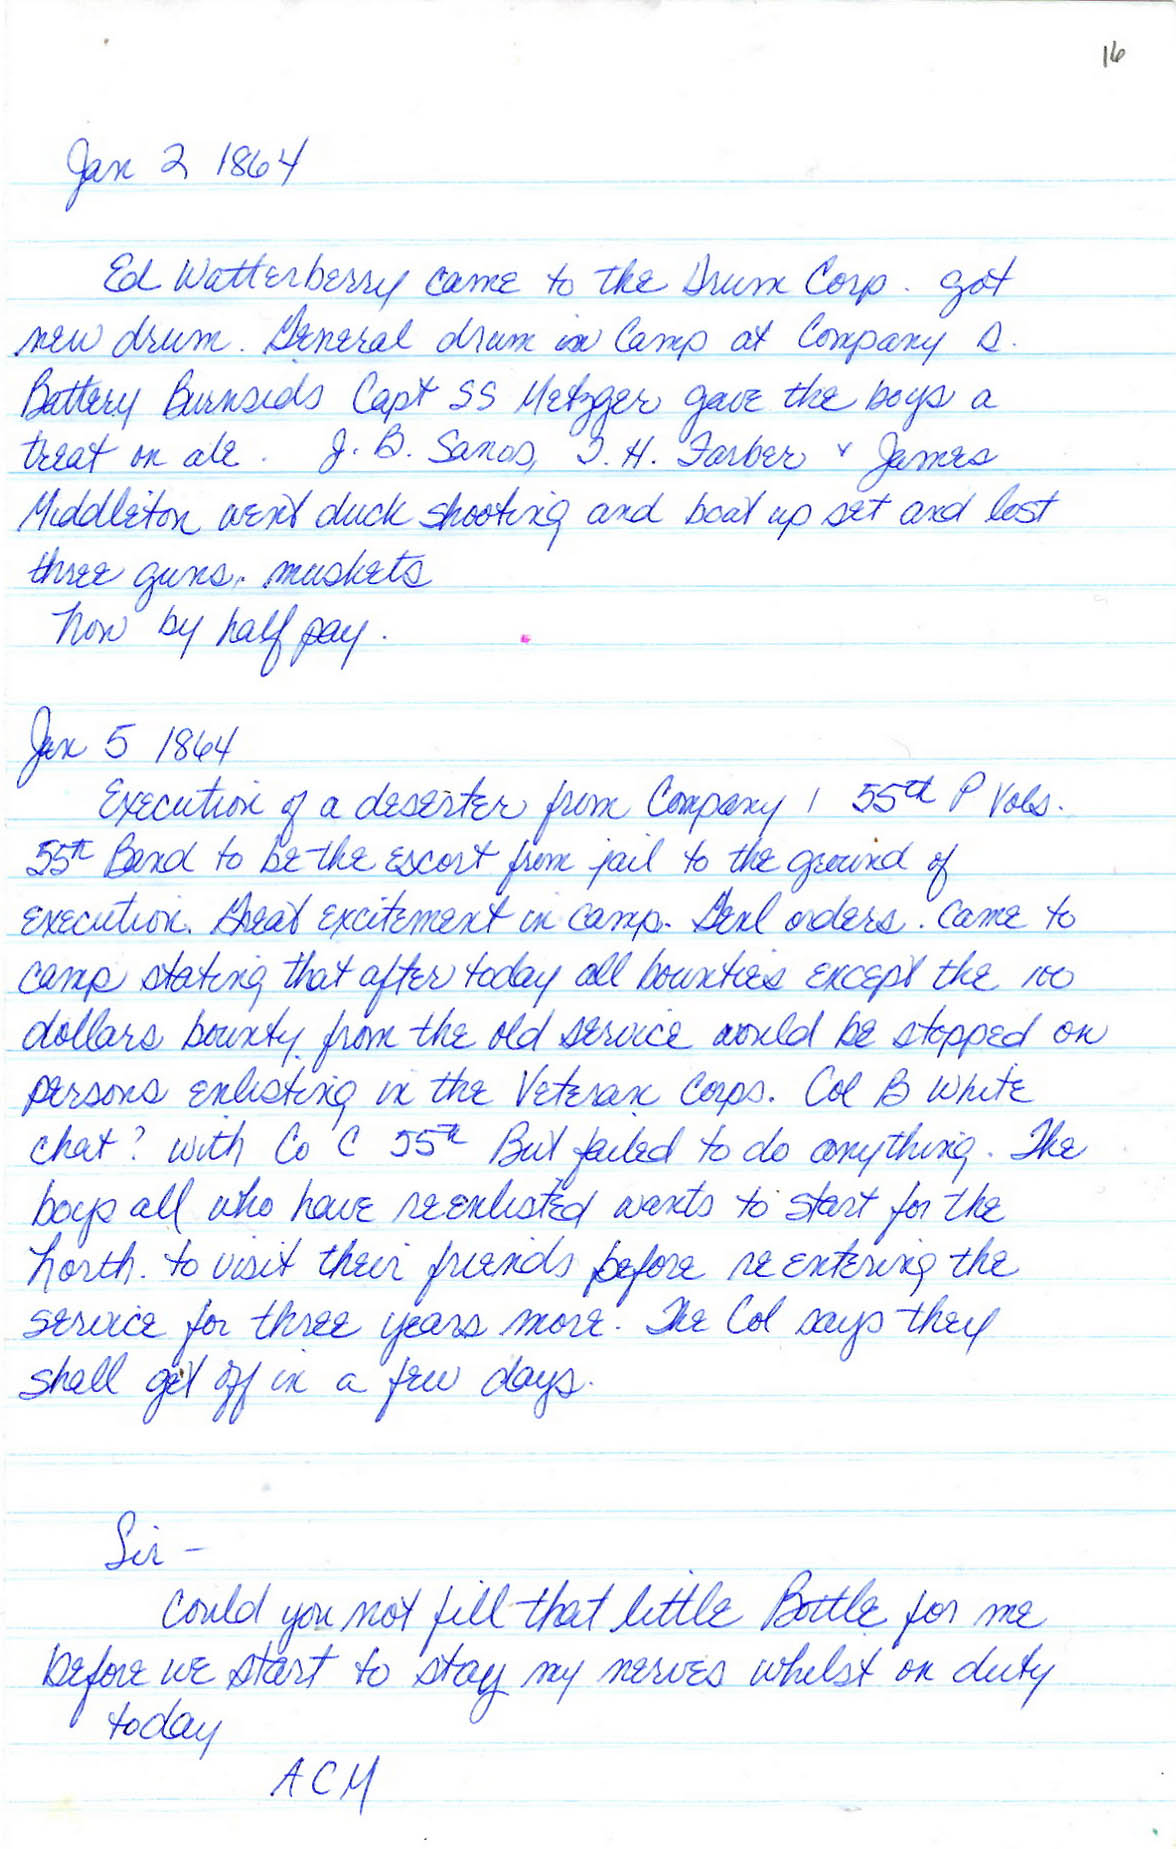 16
Jan 2 1864
Ed Watterberry came to the Drum Corp. got
new drum. General drum in Camp at Company D.
Battery Burnsids Capt SS Metzger gave the boys a
treat on ale. J. B. Sanos, T. H. Farber & James
Middleton went duck shooting and boat up set and lost
three guns, muskets
now by half pay.
Jan 5 1864
Execution of a deserter from Company I 55th P Vols.
55th Band to be the escort from jail to the ground of
execution. Great excitement in camp. Genl orders. Came to
camp stating that after today all bounties except the 100
dollars bounty from the old service would be stopped on
persons enlisting in the Veteran Corps. Col B White
chat? with Co C 55th But failed to do anything. The
boys all who have reenlisted wants to start for the
North. to visit their friends before re entering the
service for three years more. The Col says they
shall get off in a few days.
Sir -
Could you not fill that little Bottle for me
before we start to stay my nerves whilst on duty
today
ACM